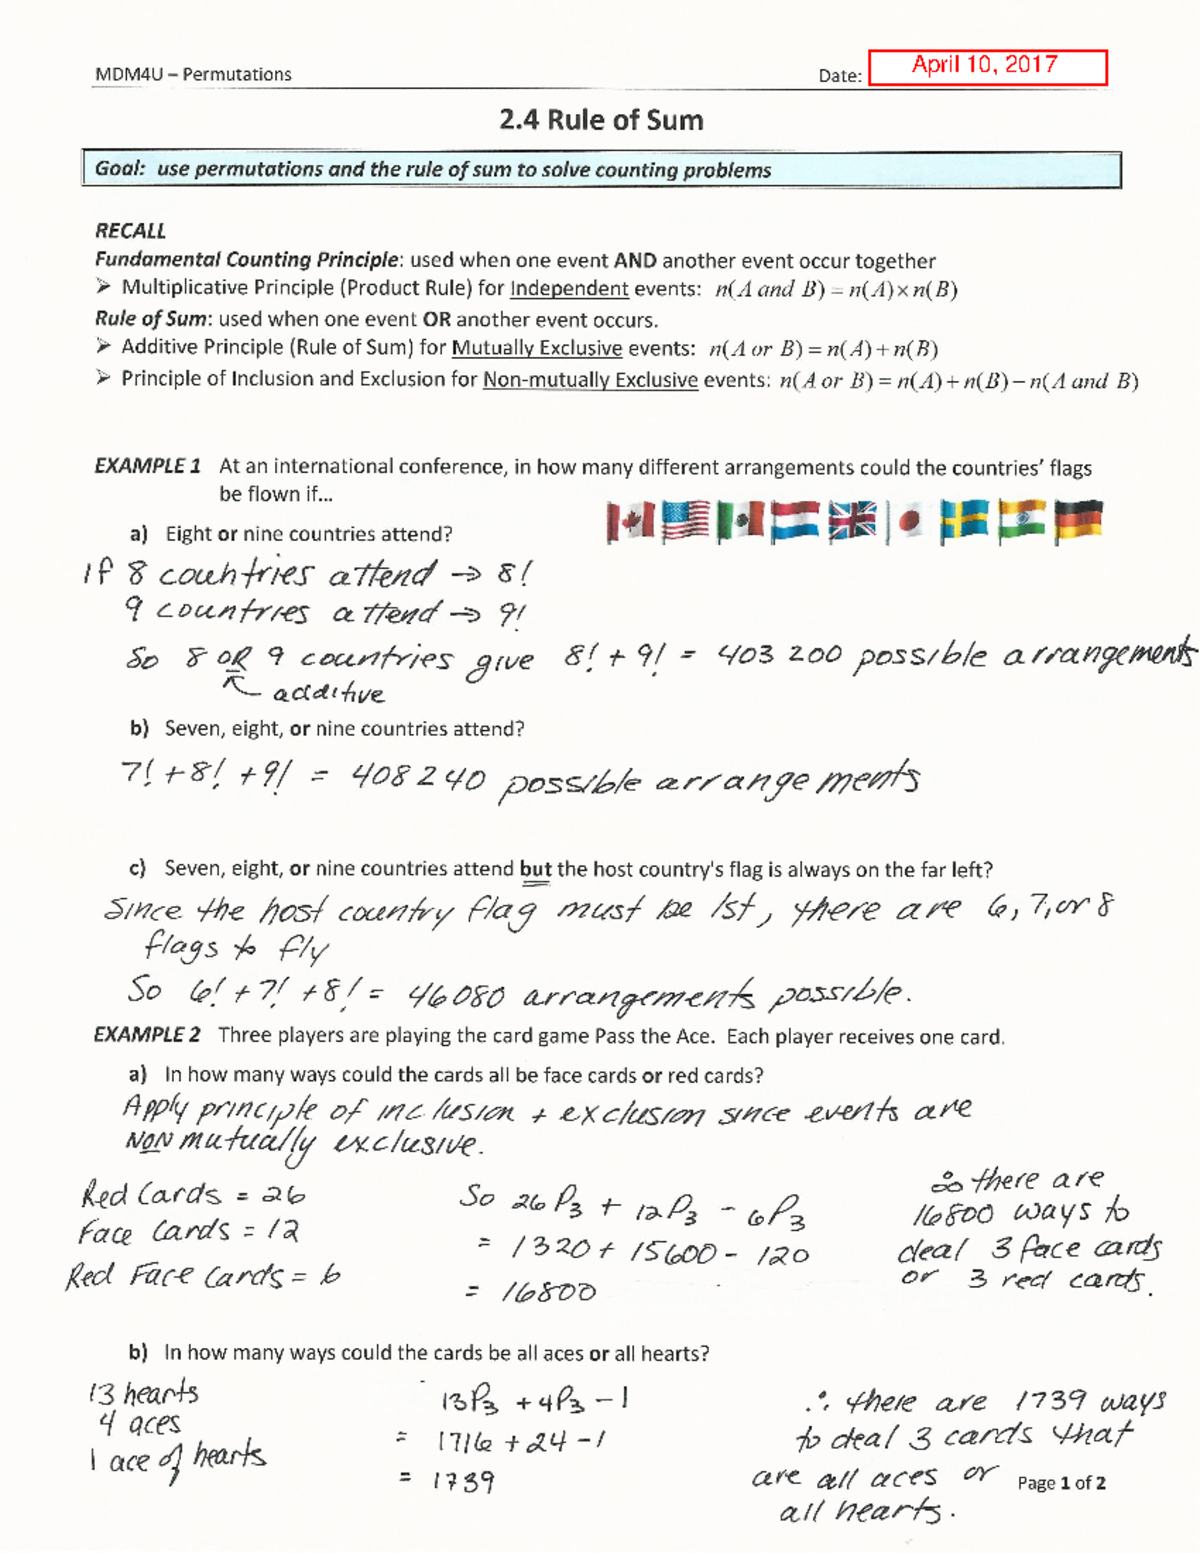 MDM4U – Permutations Date: April 10, 2017
2.4 Rule of Sum
Goal: use permutations and the rule of sum to solve counting problems
RECALL
Fundamental Counting Principle: used when one event AND another event occur together
➢ Multiplicative Principle (Product Rule) for Independent events: n(A and B) = n(A)×n(B)
Rule of Sum: used when one event OR another event occurs.
➢ Additive Principle (Rule of Sum) for Mutually Exclusive events: n(A or B) = n(A)+n(B)
➢ Principle of Inclusion and Exclusion for Non-mutually Exclusive events: n(A or B) = n(A)+n(B)−n(A and B)
EXAMPLE 1 At an international conference, in how many different arrangements could the countries' flags
be flown if...
a) Eight or nine countries attend?
If 8 countries attend → 8!
9 countries attend → 9!
So 8 OR 9 countries give 8! + 9! = 403 200 possible arrangements
↖ additive
b) Seven, eight, or nine countries attend?
7! + 8! + 9! = 408 240 possible arrangements
c) Seven, eight, or nine countries attend but the host country's flag is always on the far left?
Since the host country flag must be 1st, there are 6, 7, or 8
flags to fly
So 6! + 7! + 8! = 46080 arrangements possible.
EXAMPLE 2 Three players are playing the card game Pass the Ace. Each player receives one card.
a) In how many ways could the cards all be face cards or red cards?
Apply principle of inclusion + exclusion since events are
NON mutually exclusive.
Red Cards = 26
Face Cards = 12
Red Face Cards = 6
So 26P3 + 12P3 - 6P3
= 1320 + 15600 - 120
= 16800
∴ there are
16800 ways to
deal 3 face cards
or 3 red cards.
b) In how many ways could the cards be all aces or all hearts?
13 hearts
4 aces
1 ace of hearts
13P3 + 4P3 - 1
= 1716 + 24 - 1
= 1739
∴ there are 1739 ways
to deal 3 cards that
are all aces or
all hearts.
Page 1 of 2